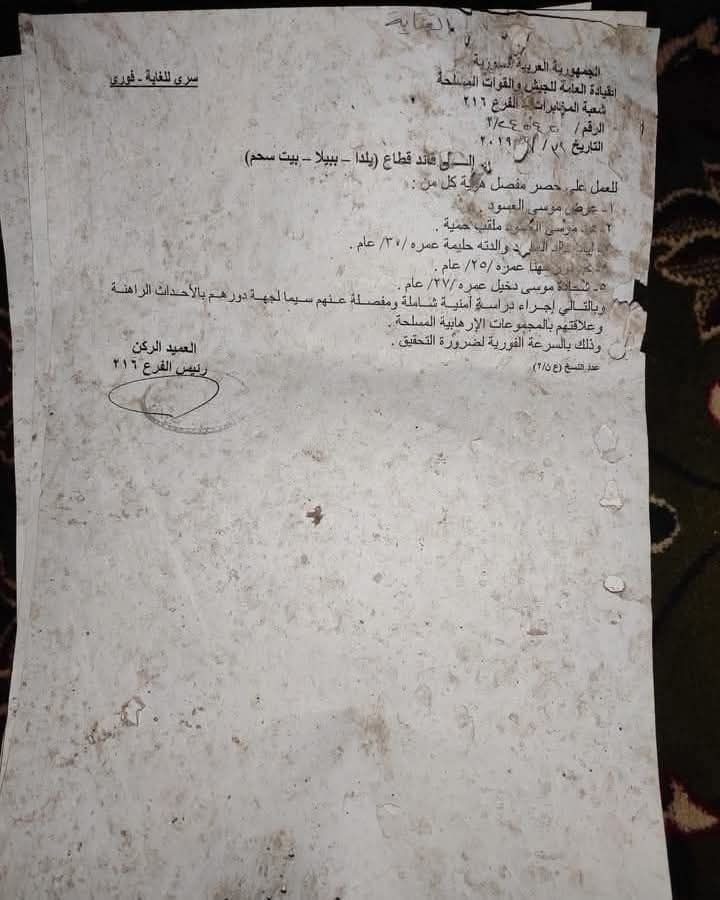 سري للغاية - فوري
الجمهورية العربية السورية
القيادة العامة للجيش والقوات المسلحة
شعبة المخابرات - الفرع ٢١٦
الرقم /
التاريخ / / ٢٠١٩
إلى قائد قطاع (يلدا - ببيلا - بيت سحم)
للعمل على حصر مفصل هوية كل من :
١- عرض موسى العسود
٢- موسى العسود ملقب حمية .
والدته حليمة عمره /٣٧/ عام .
مهنا عمره /٢٥/ عام .
٥- شحادة موسى دخيل عمره /٢٧/ عام .
وبالتالي إجراء دراسة أمنية شاملة ومفصلة عنهم سيما لجهة دورهم بالأحداث الراهنة
وعلاقتهم بالمجموعات الإرهابية المسلحة .
وذلك بالسرعة الفورية لضرورة التحقيق .
عدد النسخ (ع ن/٢)
العميد الركن
رئيس الفرع ٢١٦